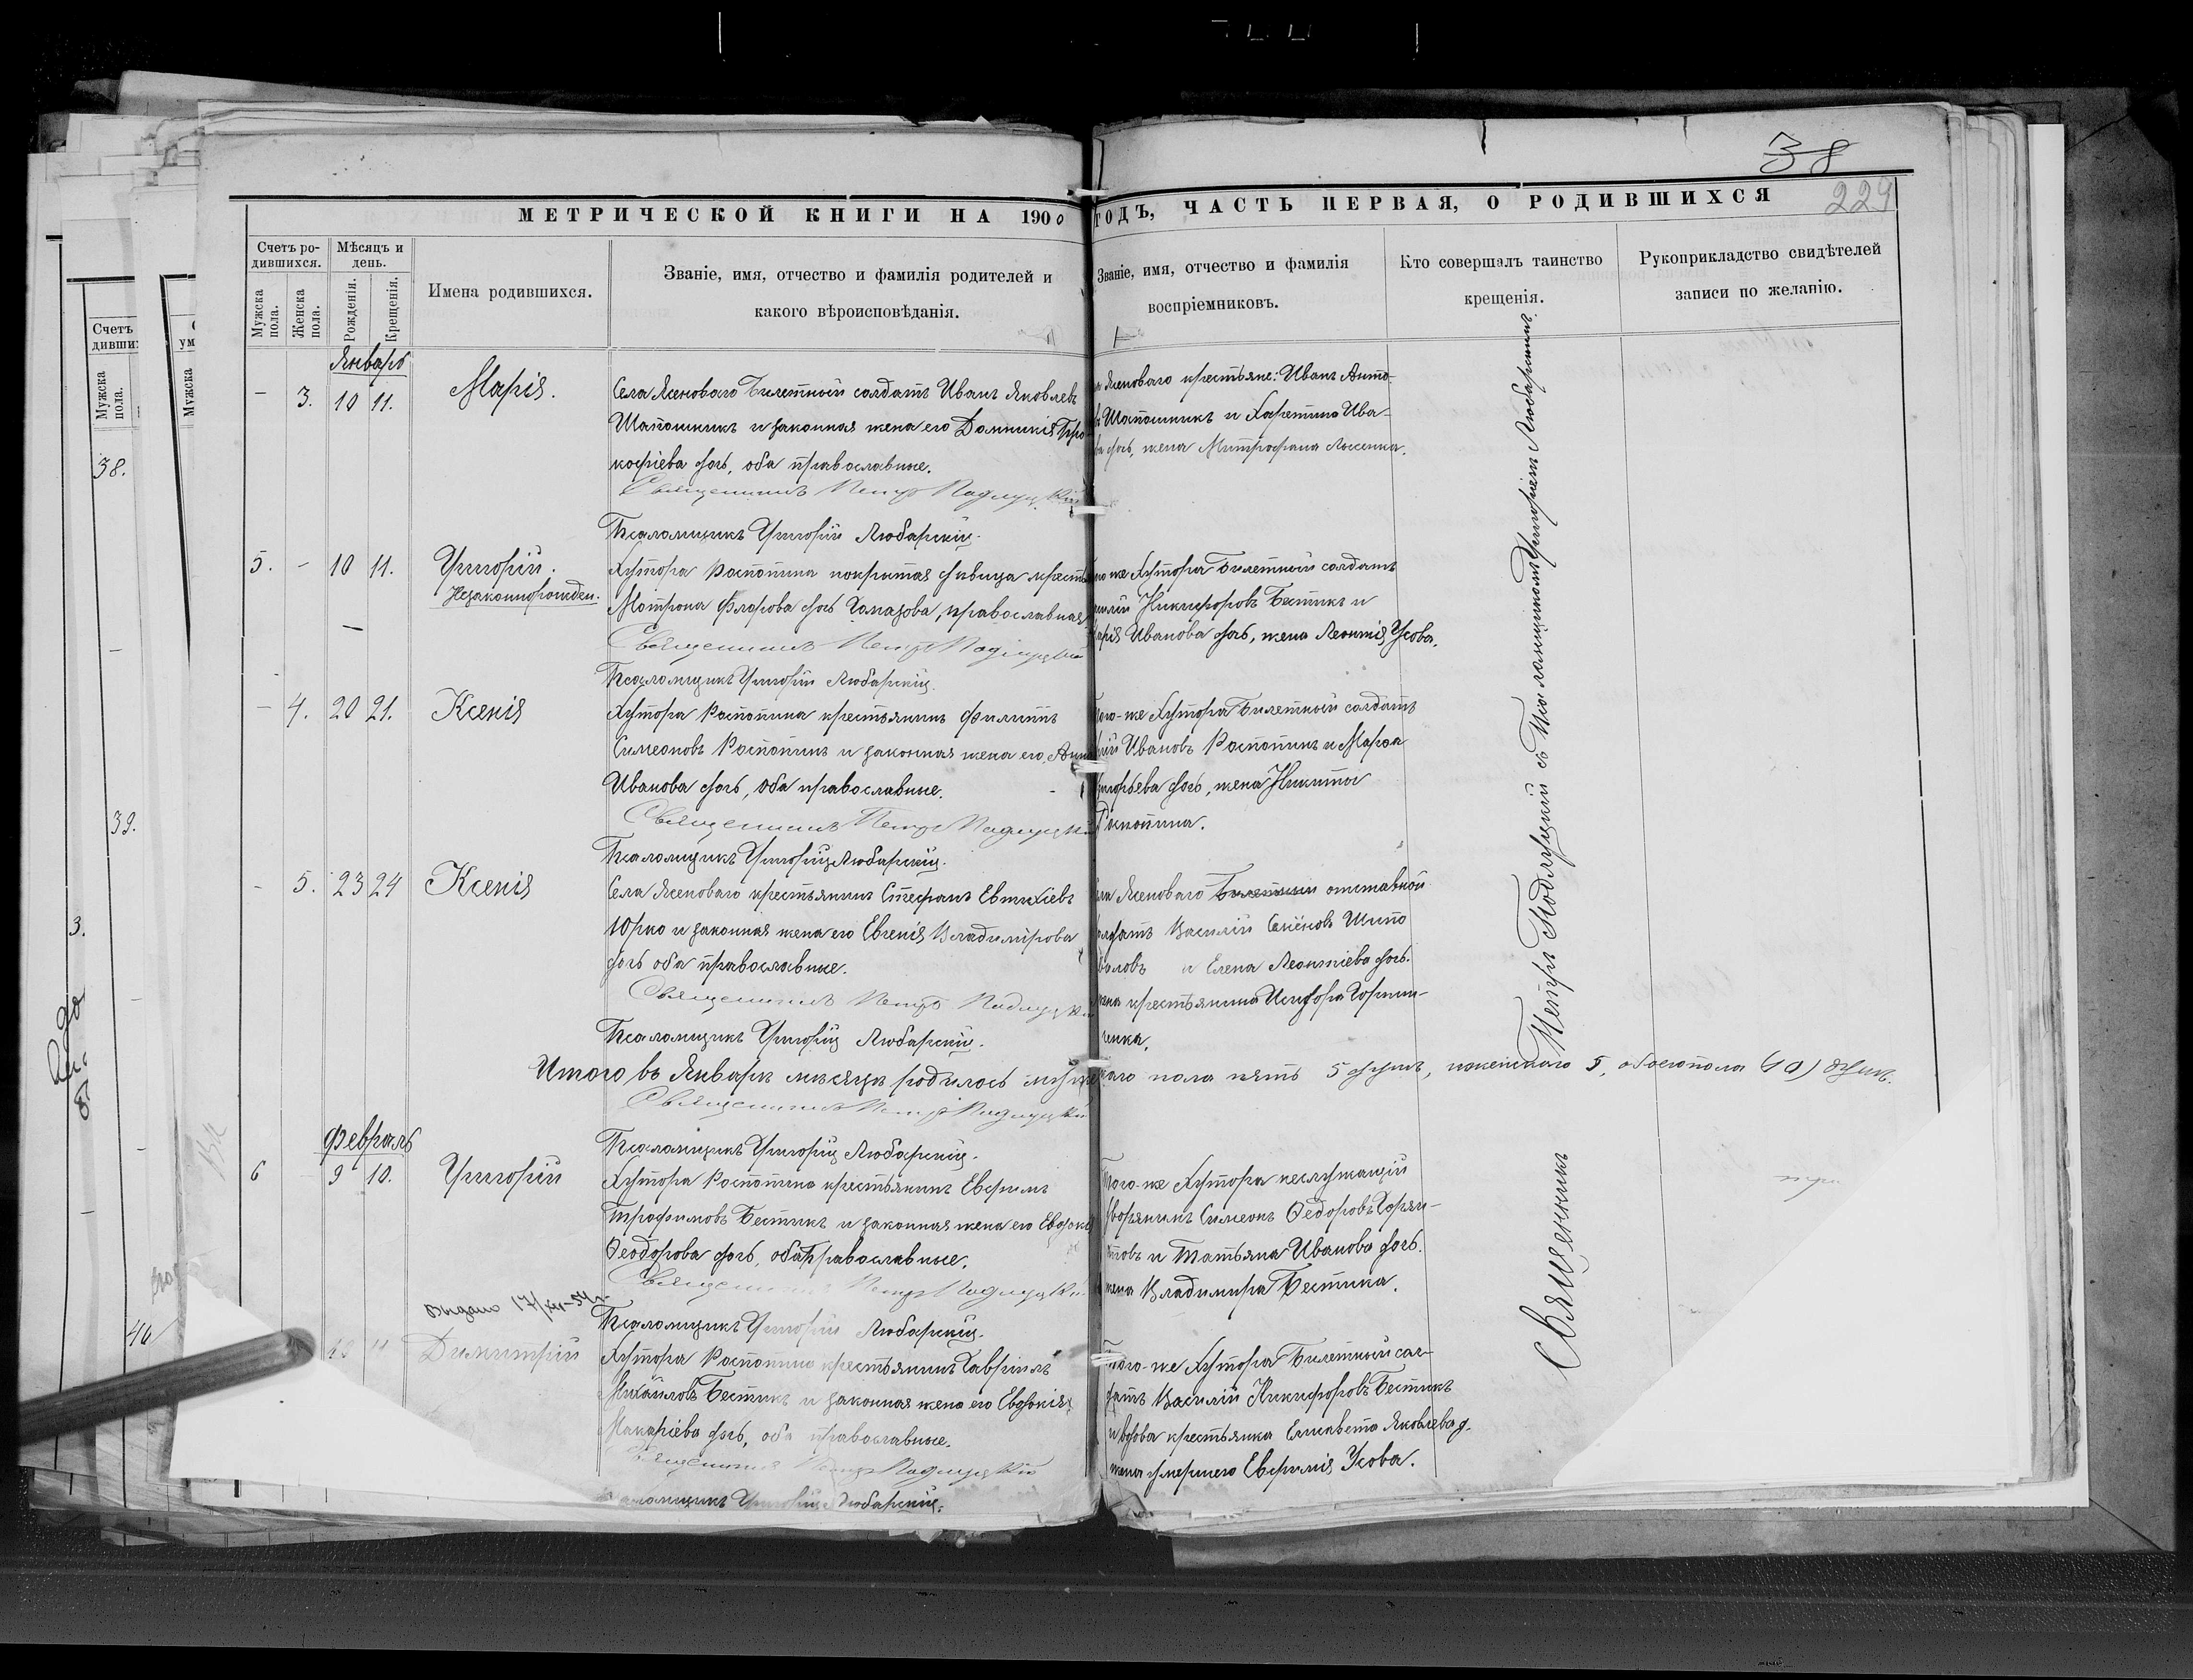 38
224
МЕТРИЧЕСКОЙ КНИГИ НА 1900
ГОДЪ, ЧАСТЬ ПЕРВАЯ, О РОДИВШИХСЯ
Счетъ ро-
дившихся.
Мужска
пола.
Женска
пола.
Мѣсяцъ и
день.
Рожденія.
Крещенія.
Имена родившихся.
Званіе, имя, отчество и фамилія родителей и
какого вѣроисповѣданія.
Званіе, имя, отчество и фамилія
воспріемниковъ.
Кто совершалъ таинство
крещенія.
Рукоприкладство свидѣтелей
записи по желанію.
Январь
- 3. 10 11. Марія.
Села Ясеноваго Билетный солдатъ Иванъ Яковлевъ
Шапошникъ и законная жена его Домникія Про
кофіева дочь, оба православные.
Священникъ Петръ Подлуцкій
Псаломщикъ Григорій Любарскій.
Ясеноваго крестьяне: Иванъ Анто-
Шапошникъ и Харетина Ива-
ва дочь, жена Митрофана Лысенка.
5. - 10 11. Григорій.
Незаконнорожден.
Хутора Распопина покрытая дѣвица крест
Матрона Флорова дочь Хомазова, православная
Священникъ Петръ Подлуцкій
Псаломщикъ Григорій Любарскій.
го же Хутора Билетный солдатъ
силій Никифоровъ Бестикъ и
арія Иванова дочь, жена Леонтія Усова.
- 4. 20 21. Ксенія
Хутора Распопина крестьянинъ Филиппъ
Симеоновъ Распопинъ и законная жена его Анна
Иванова дочь, оба православные.
Священникъ Петръ Подлуцкій
Псаломщикъ Григорій Любарскій.
того-же Хутора Билетный солдатъ
Ивановъ Распопинъ и Марфа
григорьева дочь, жена Никиты
Распопина.
- 5. 23 24 Ксенія
Села Ясеноваго крестьянинъ Стефанъ Евтихіевъ
Юрко и законная жена его Евгенія Владимірова
дочь оба православные.
Священникъ Петръ Подлуцкій
Псаломщикъ Григорій Любарскій.
ла Ясеноваго Билетный отставной
олдатъ Василій Шипо
валовъ и Елена Леонтіева дочь.
жена крестьянина Исидора Горпин-
ченка.
Итого въ Январѣ мѣсяцѣ родилось мужескаго пола пять 5 душъ, женскаго 5, обоего пола (10) душъ.
Священникъ Петръ Подлуцкій
Псаломщикъ Григорій Любарскій.
Февраль
6 9 10. Григорій
Хутора Распопина крестьянинъ Евфимъ
Трофимовъ Бестикъ и законная жена его Евдокія
Феодорова дочь, оба Православные.
Священникъ Петръ Подлуцкій
Псаломщикъ Григорій Любарскій.
Того-же Хутора неслужащій
дворянинъ Симеонъ Федоровъ
товъ и Татьяна Иванова дочь.
жена Владимира Бестика.
Выдано 17/
10 11 Димитрій
Хутора Распопина крестьянинъ Гавріилъ
Михайловъ Бестикъ и законная жена его Евдокія
Макаріева дочь, оба православные.
Священникъ Петръ Подлуцкій
Псаломщикъ Григорій Любарскій.
того-же Хутора Билетный сол-
датъ Василій Никифоровъ Бестикъ
и вдова крестьянка Елисавета Яковлева д.
жена умершего Евфимія Усова.
Священникъ Петръ Подлуцкій съ Псаломщикомъ Григоріемъ Любарскимъ.
Счетъ
дивши
Мужска
пола.
38.
39.
3.
40
ум
Мужска